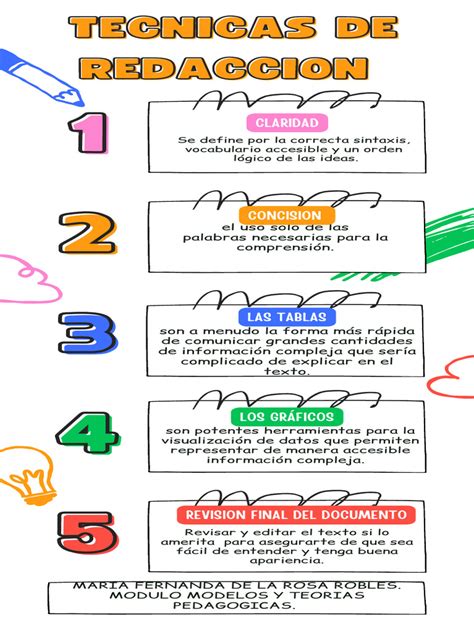 TECNICAS DE
REDACCION
1
CLARIDAD
Se define por la correcta sintaxis,
vocabulario accesible y un orden
lógico de las ideas.
2
CONCISION
el uso solo de las
palabras necesarias para la
comprensión.
3
LAS TABLAS
son a menudo la forma más rápida
de comunicar grandes cantidades
de información compleja que sería
complicado de explicar en el
texto.
4
LOS GRÁFICOS
son potentes herramientas para la
visualización de datos que permiten
representar de manera accesible
información compleja.
5
REVISION FINAL DEL DOCUMENTO
Revisar y editar el texto si lo
amerita para asegurarte de que sea
fácil de entender y tenga buena
apariencia.
MARIA FERNANDA DE LA ROSA ROBLES.
MODULO MODELOS Y TEORIAS
PEDAGOGICAS.